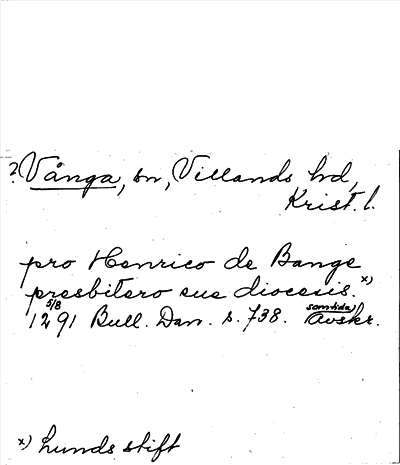 ? Vånga, sn, Villands hd,
Krist. l.
pro Henrico de Bange
presbitero sue diocesis. x)
5/8 1291 Bull. Dan. s. 738. samtida Avskr.
x) Lunds stift